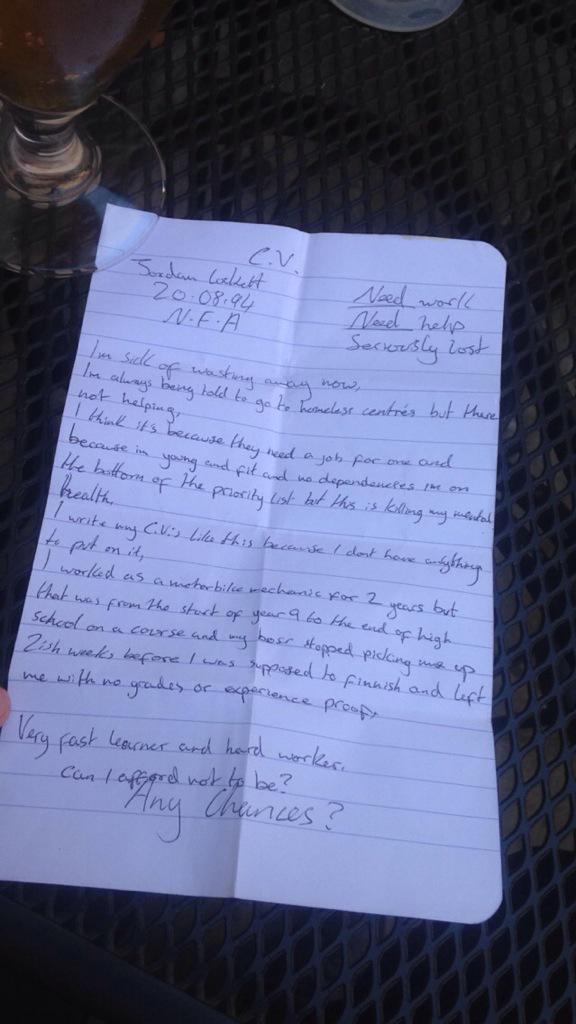 C.V.
Jordan Lockett
20.08.94
N.F.A
Need work
Need help
Seriously lost
Im sick of wasting away now,
Im always being told to go to homeless centres but there
not helping,
I think it's because they need a job for one and
because im young and fit and no dependencies im on
the bottom of the priority list but this is killing my mental
health.
I write my C.V's like this because I dont have anything
to put on it,
I worked as a motorbike mechanic for 2 years but
that was from the start of year 9 to the end of high
school on a course and my boss stopped picking me up
2ish weeks before I was supposed to finnish and left
me with no grades or experience proof,
Very fast learner and hard worker.
can I afford not to be?
Any Chances?